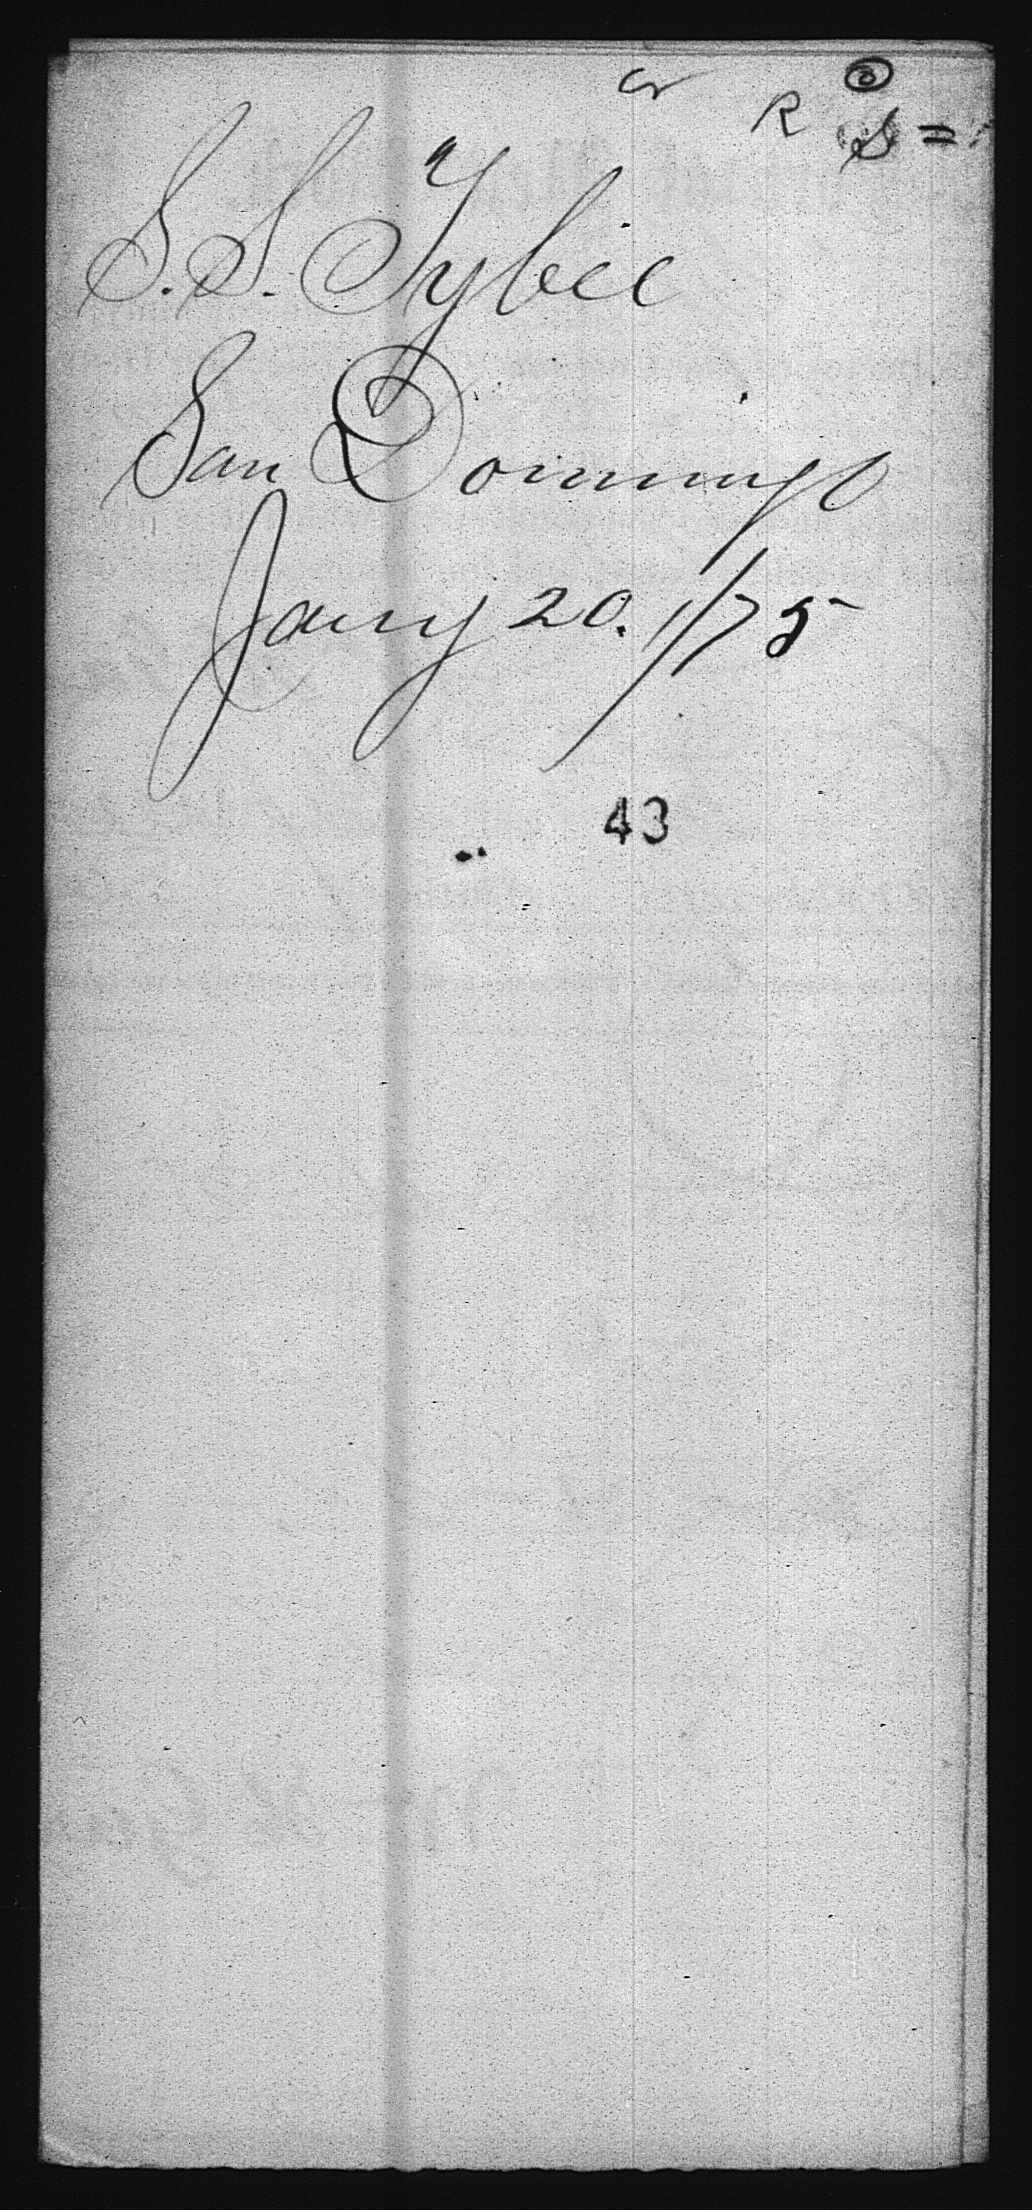 cr R
S =
S.S. Tybee
San Domingo
Jany 20. /75
43